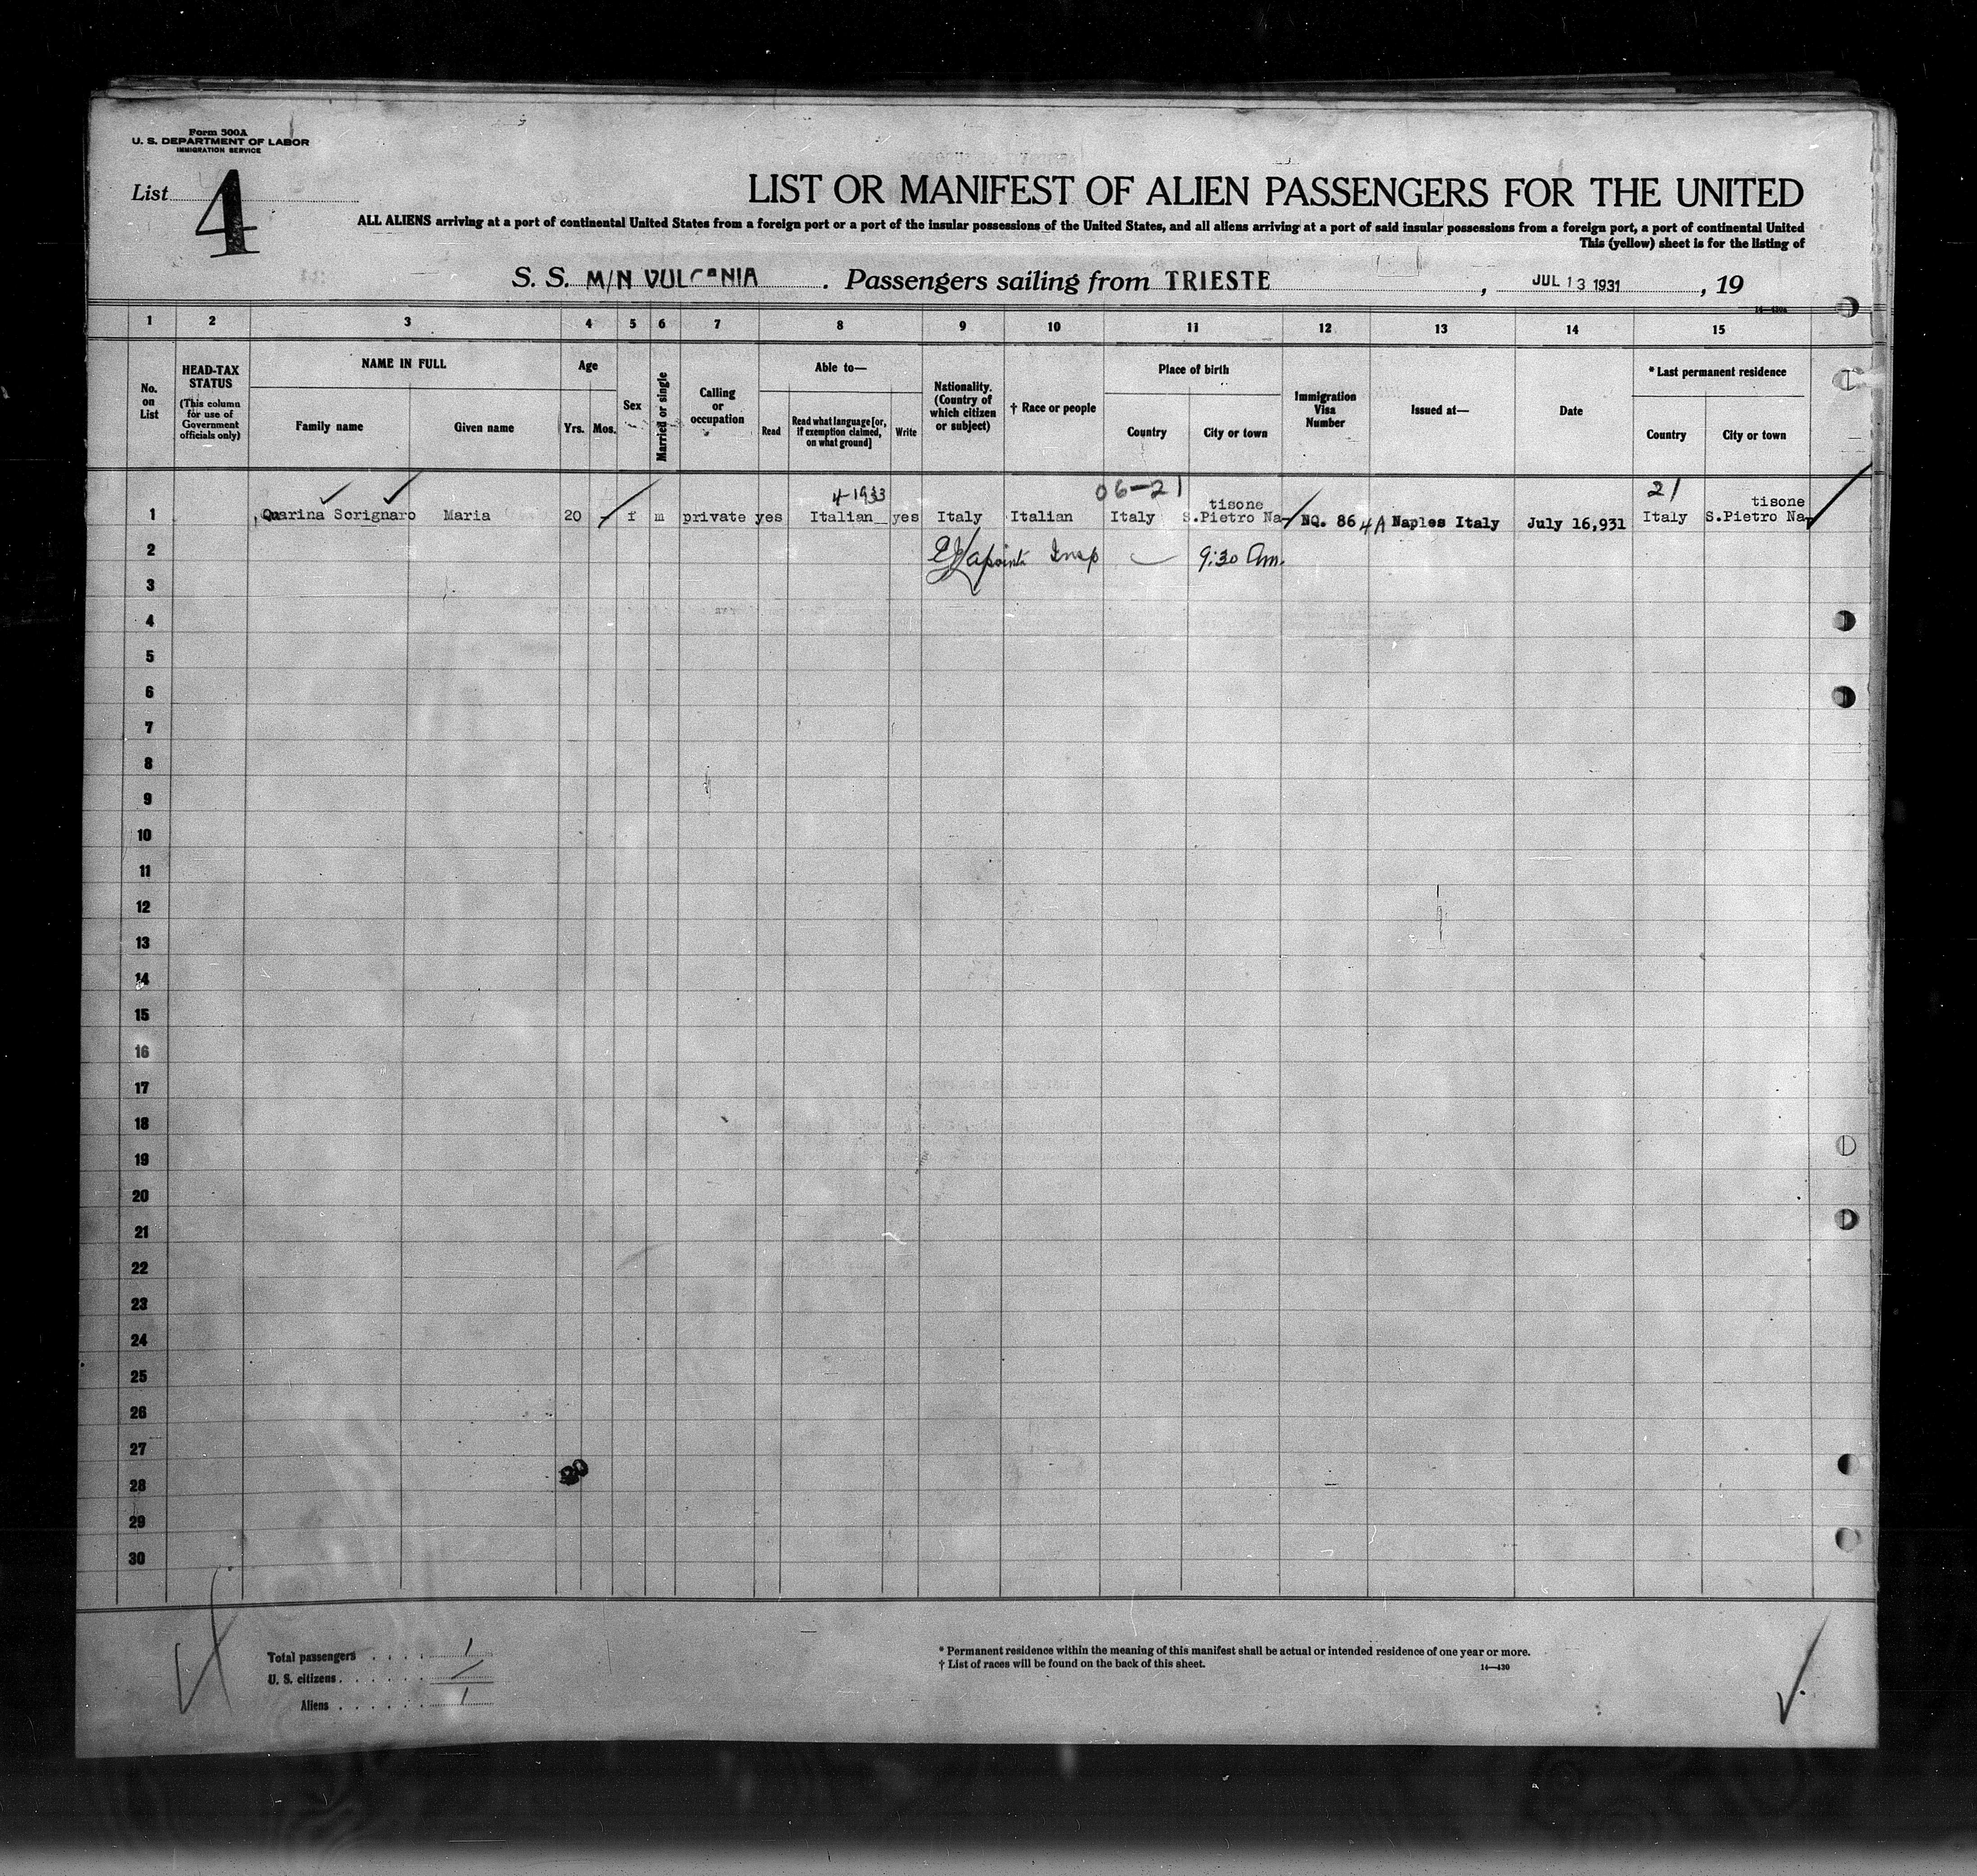 Form 500A
U. S. DEPARTMENT OF LABOR
IMMIGRATION SERVICE
List 4
LIST OR MANIFEST OF ALIEN PASSENGERS FOR THE UNITED
ALL ALIENS arriving at a port of continental United States from a foreign port or a port of the insular possessions of the United States, and all aliens arriving at a port of said insular possessions from a foreign port, a port of continental United
This (yellow) sheet is for the listing of
S. S. M/N VULCANIA . Passengers sailing from TRIESTE , JUL 13 1931 , 19
1 2 3 4 5 6 7 8 9 10 11 12 13 14 15
No. on List
HEAD-TAX STATUS
(This column for use of Government officials only)
NAME IN FULL
Family name
Given name
Age
Yrs. Mos.
Sex
Married or single
Calling or occupation
Able to—
Read
Read what language [or, if exemption claimed, on what ground]
Write
Nationality. (Country of which citizen or subject)
† Race or people
Place of birth
Country
City or town
Immigration Visa Number
Issued at—
Date
* Last permanent residence
Country
City or town
4-1933 06-21 21
tisone tisone
1 Quarina Scrignaro Maria 20 - f m private yes Italian yes Italy Italian Italy S.Pietro Na- NQ. 864 A Naples Italy July 16,931 Italy S.Pietro Na-
2 Insp 9:30 Am.
3
4
5
6
7
8
9
10
11
12
13
14
15
16
17
18
19
20
21
22
23
24
25
26
27
28
29
30
Total passengers 1
U. S. citizens /
Aliens 1
* Permanent residence within the meaning of this manifest shall be actual or intended residence of one year or more.
† List of races will be found on the back of this sheet.
14—430